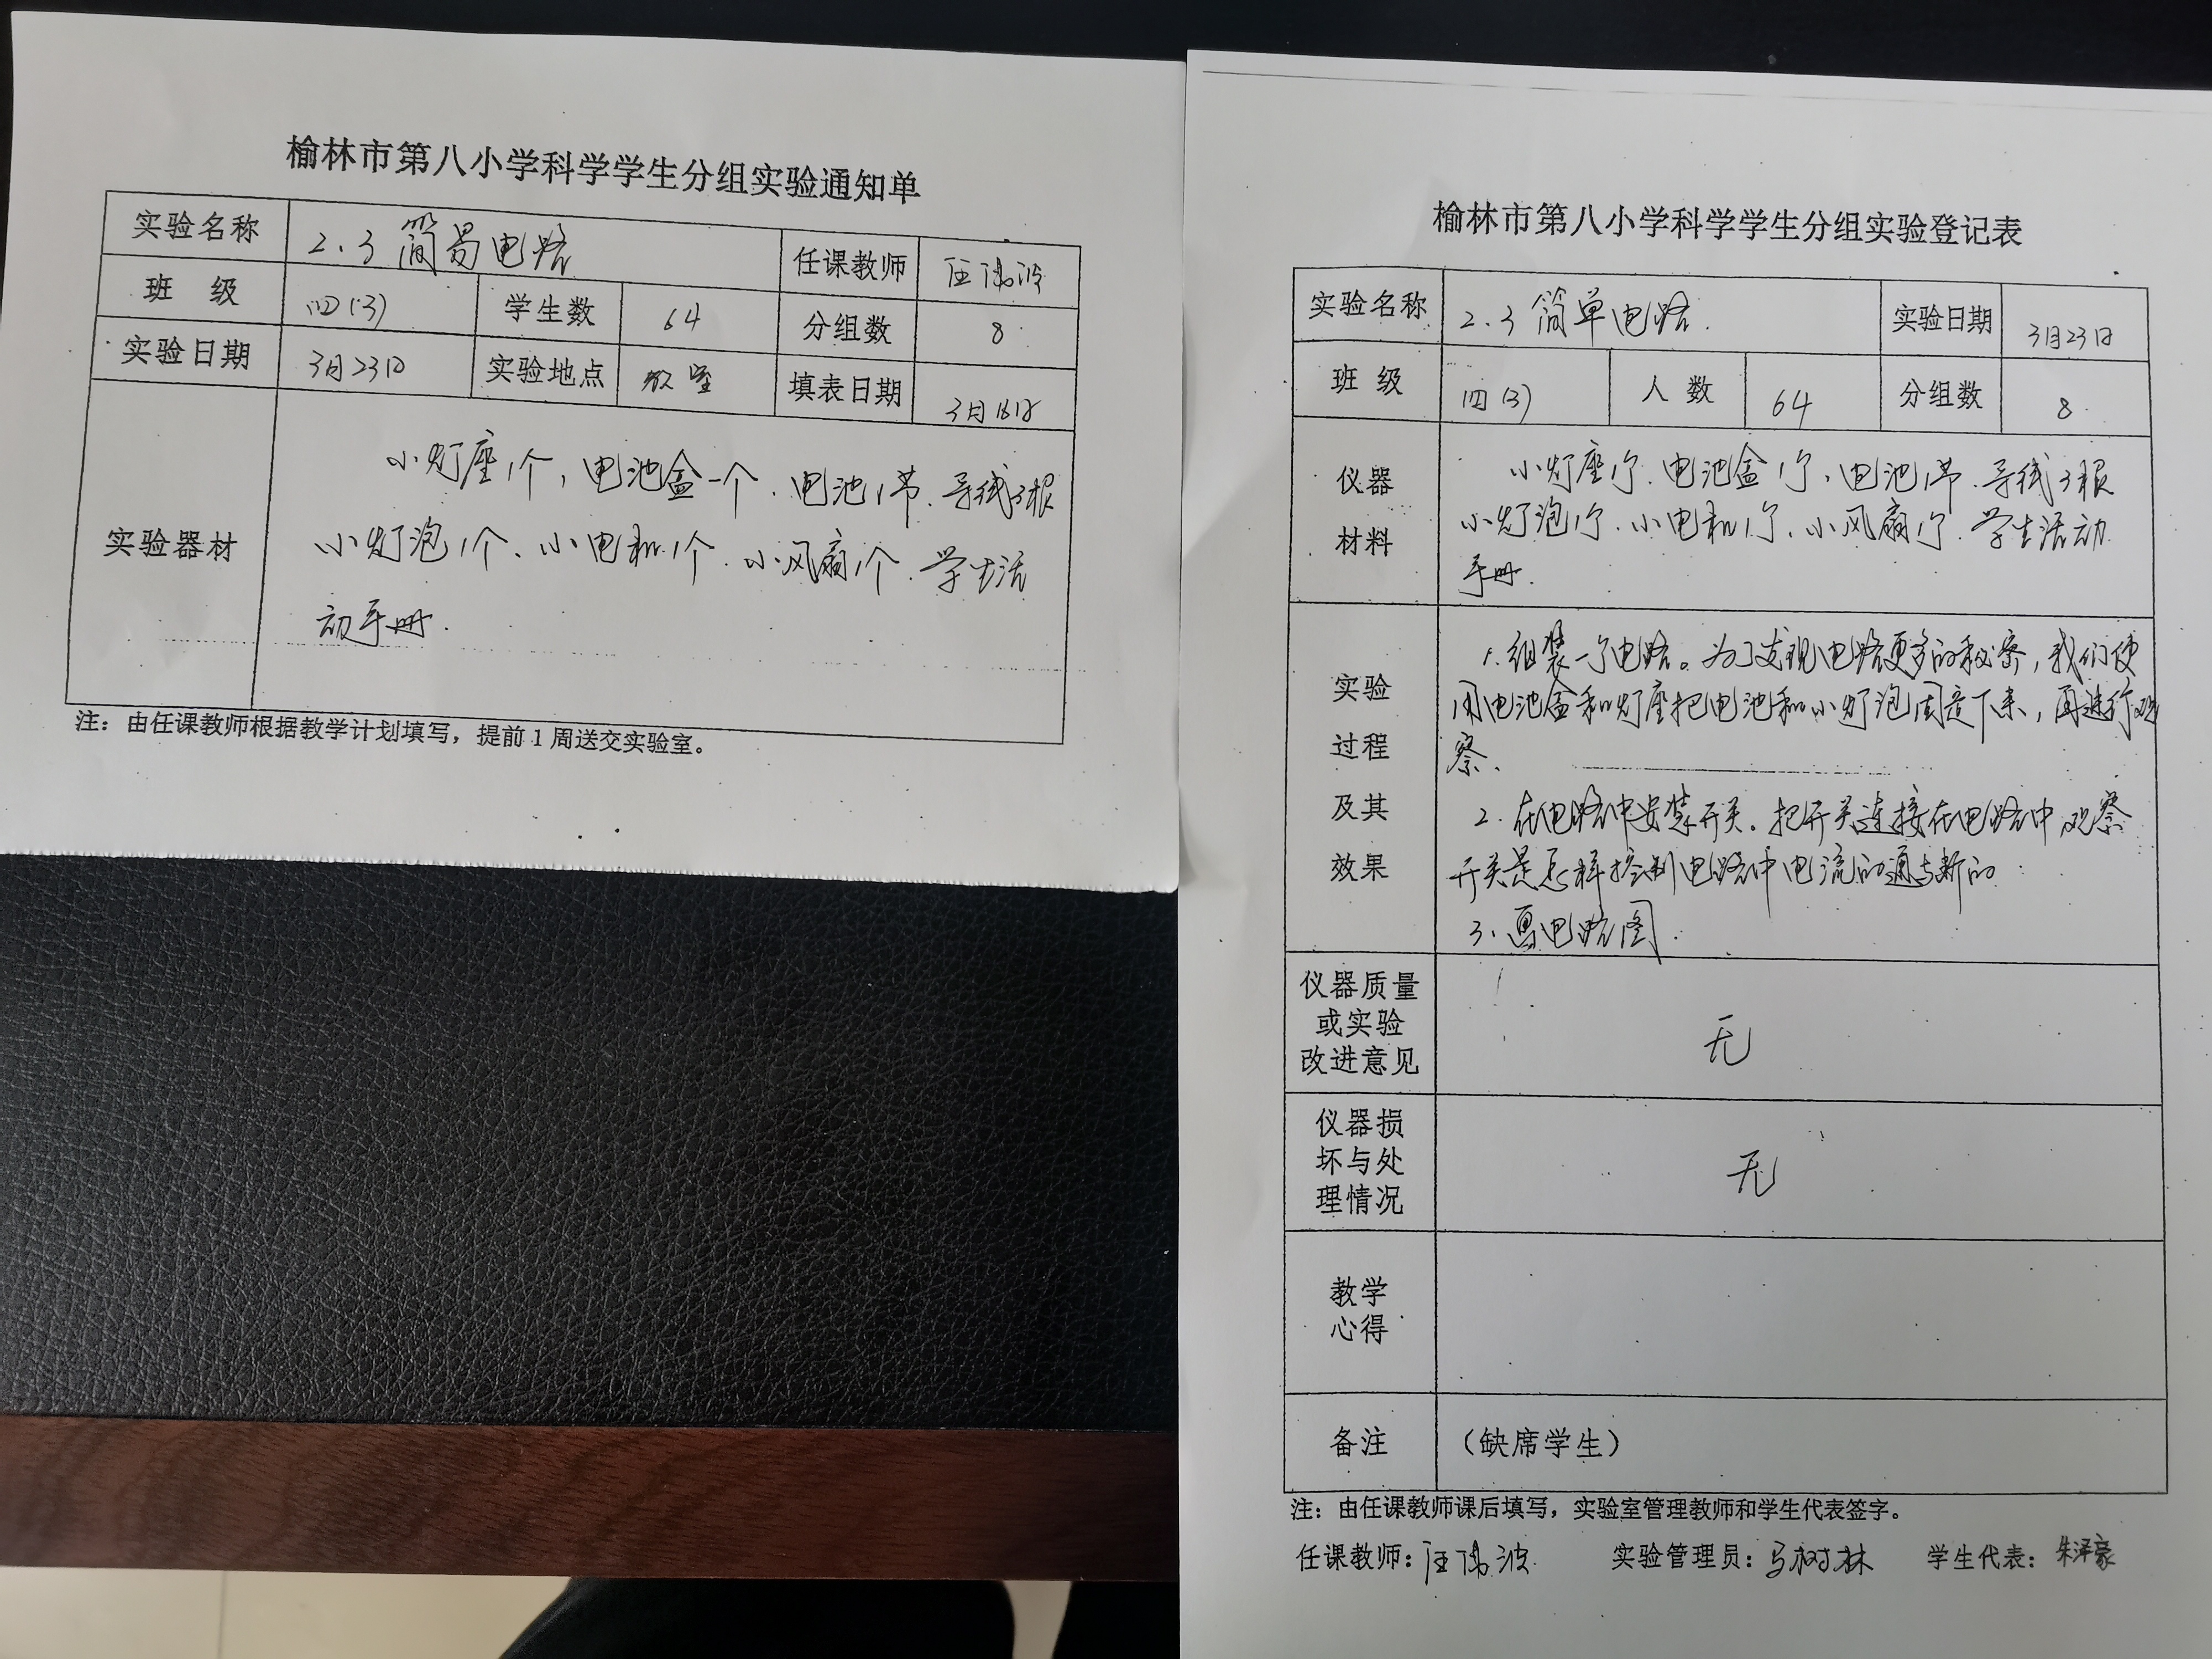 榆林市第八小学科学学生分组实验通知单
实验名称 2.3 简易电路 任课教师 汪伟波
班 级 四(3) 学生数 64 分组数 8
实验日期 3月23日 实验地点 教室 填表日期 3月16日
小灯座1个,电池盒一个、电池1节、导线3根
实验器材 小灯泡1个、小电机1个、小风扇1个、学生活
动手册.
注:由任课教师根据教学计划填写,提前1周送交实验室。
榆林市第八小学科学学生分组实验登记表
实验名称 2.3 简单电路. 实验日期 3月23日
班 级 四(3) 人 数 64 分组数 8
仪器 小灯座1个、电池盒1个、电池1节、导线3根
材料 小灯泡1个、小电机1个、小风扇1个、学生活动
手册.
1.组装一个电路。为了发现电路更多的秘密,我们使
实验 用电池盒和灯座把电池和小灯泡固定下来,再进行观
过程 察、
及其 2.在电路中安装开关。把开关连接在电路中,观察
效果 开关是怎样控制电路中电流的通与断的
3、画电路图.
仪器质量
或实验
改进意见 无
仪器损
坏与处
理情况 无
教学
心得
备注 (缺席学生)
注:由任课教师课后填写,实验室管理教师和学生代表签字。
任课教师:汪伟波 实验管理员:马树林 学生代表: